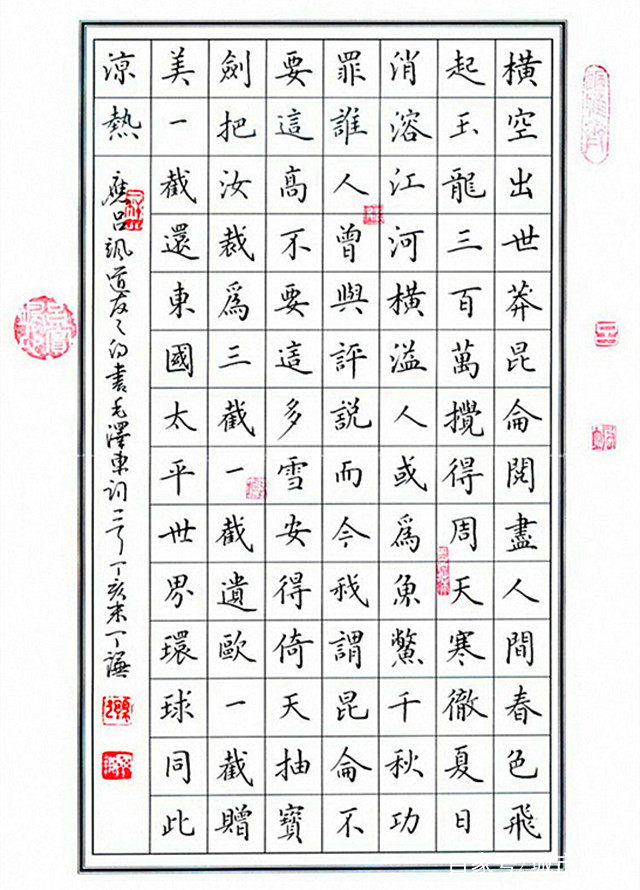 橫空出世莽昆侖閱盡人間春色飛
起玉龍三百萬攪得周天寒徹夏日
消溶江河橫溢人或爲魚鱉千秋功
罪誰人曾與評説而今我謂昆侖不
要這高不要這多雪安得倚天抽寶
劍把汝裁爲三截一截遺歐一截贈
美一截還東國太平世界環球同此
涼熱
應呂颯道友之書毛澤東詞丁亥末丁謙